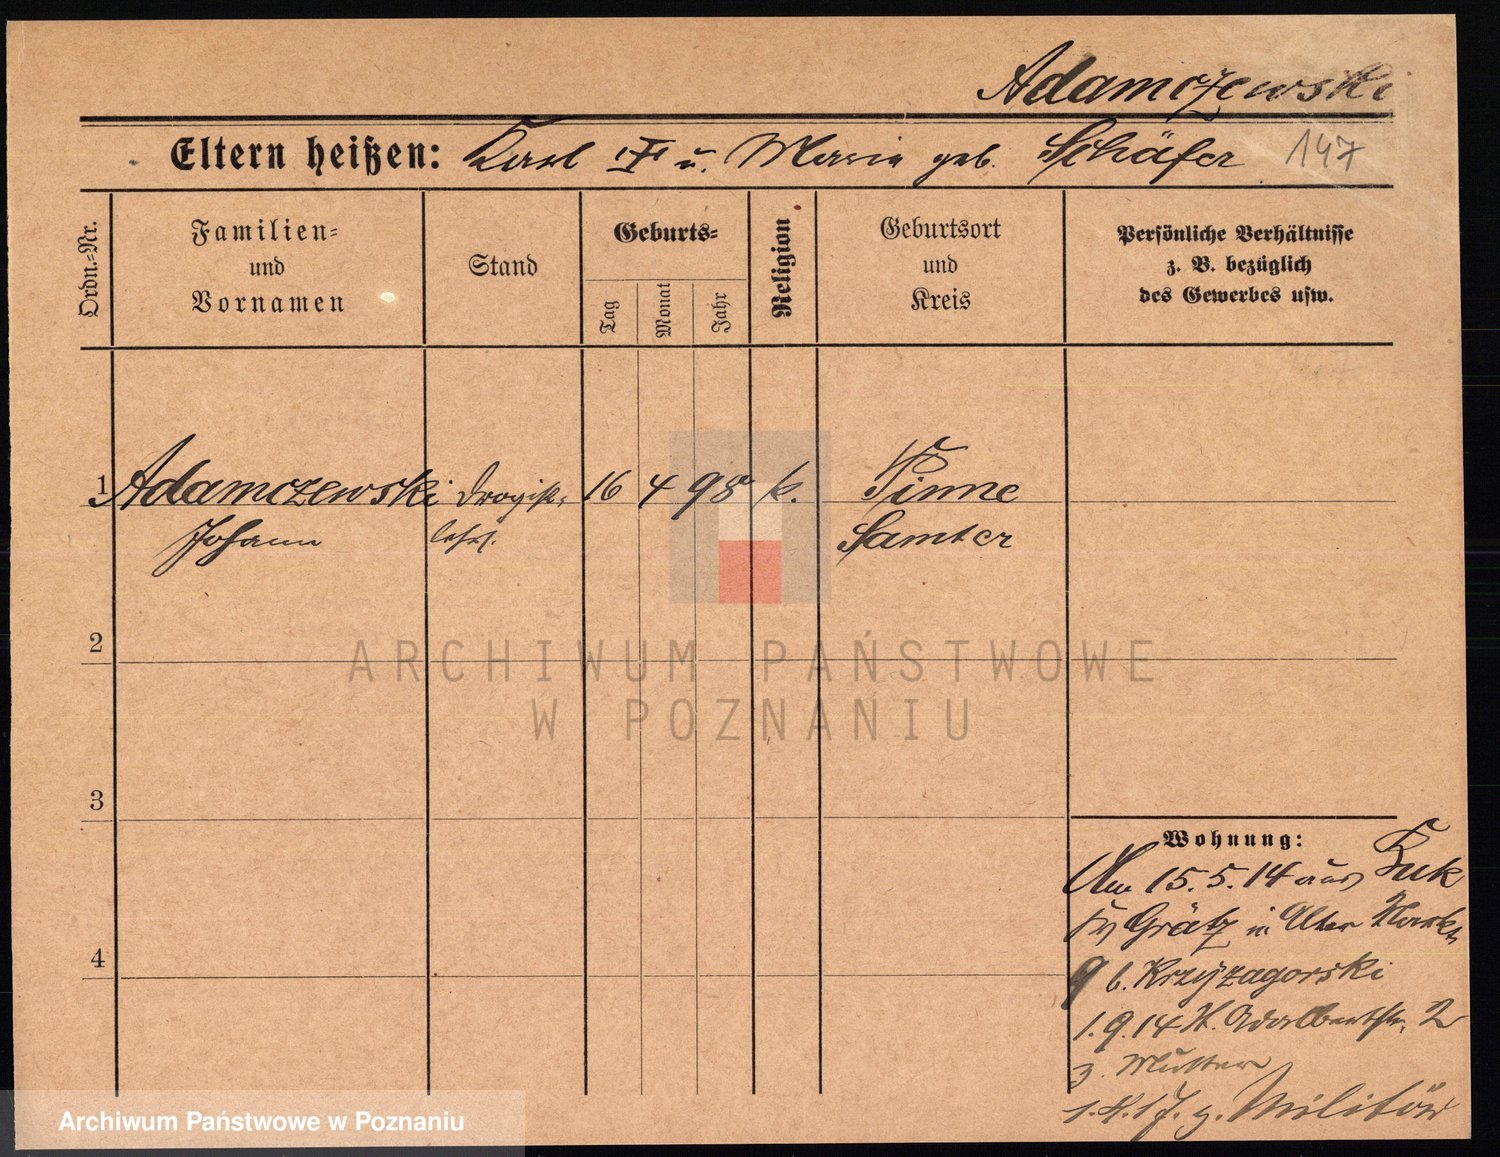 Adamczewski
Eltern heißen: Karl u. Maria geb. Schäfer 147
Ordn.-Nr.
Familien-
und
Vornamen
Stand
Geburts-
Tag
Monat
Jahr
Religion
Geburtsort
und
Kreis
Persönliche Verhältnisse
z. B. bezüglich
des Gewerbes usw.
1 Adamczewski Drogist- 16 4 98 k. Pinne
Johann lehrl. Samter
2
3
4
Wohnung:
Am 15.5.14 aus Buk
Kr Grätz in Alter Markt
9 b. Krzyżagorski
1.9.14 Kl. Adalbertstr. 2
z. Mutter
1.4.17. z. Militär
ARCHIWUM PAŃSTWOWE
W POZNANIU
Archiwum Państwowe w Poznaniu